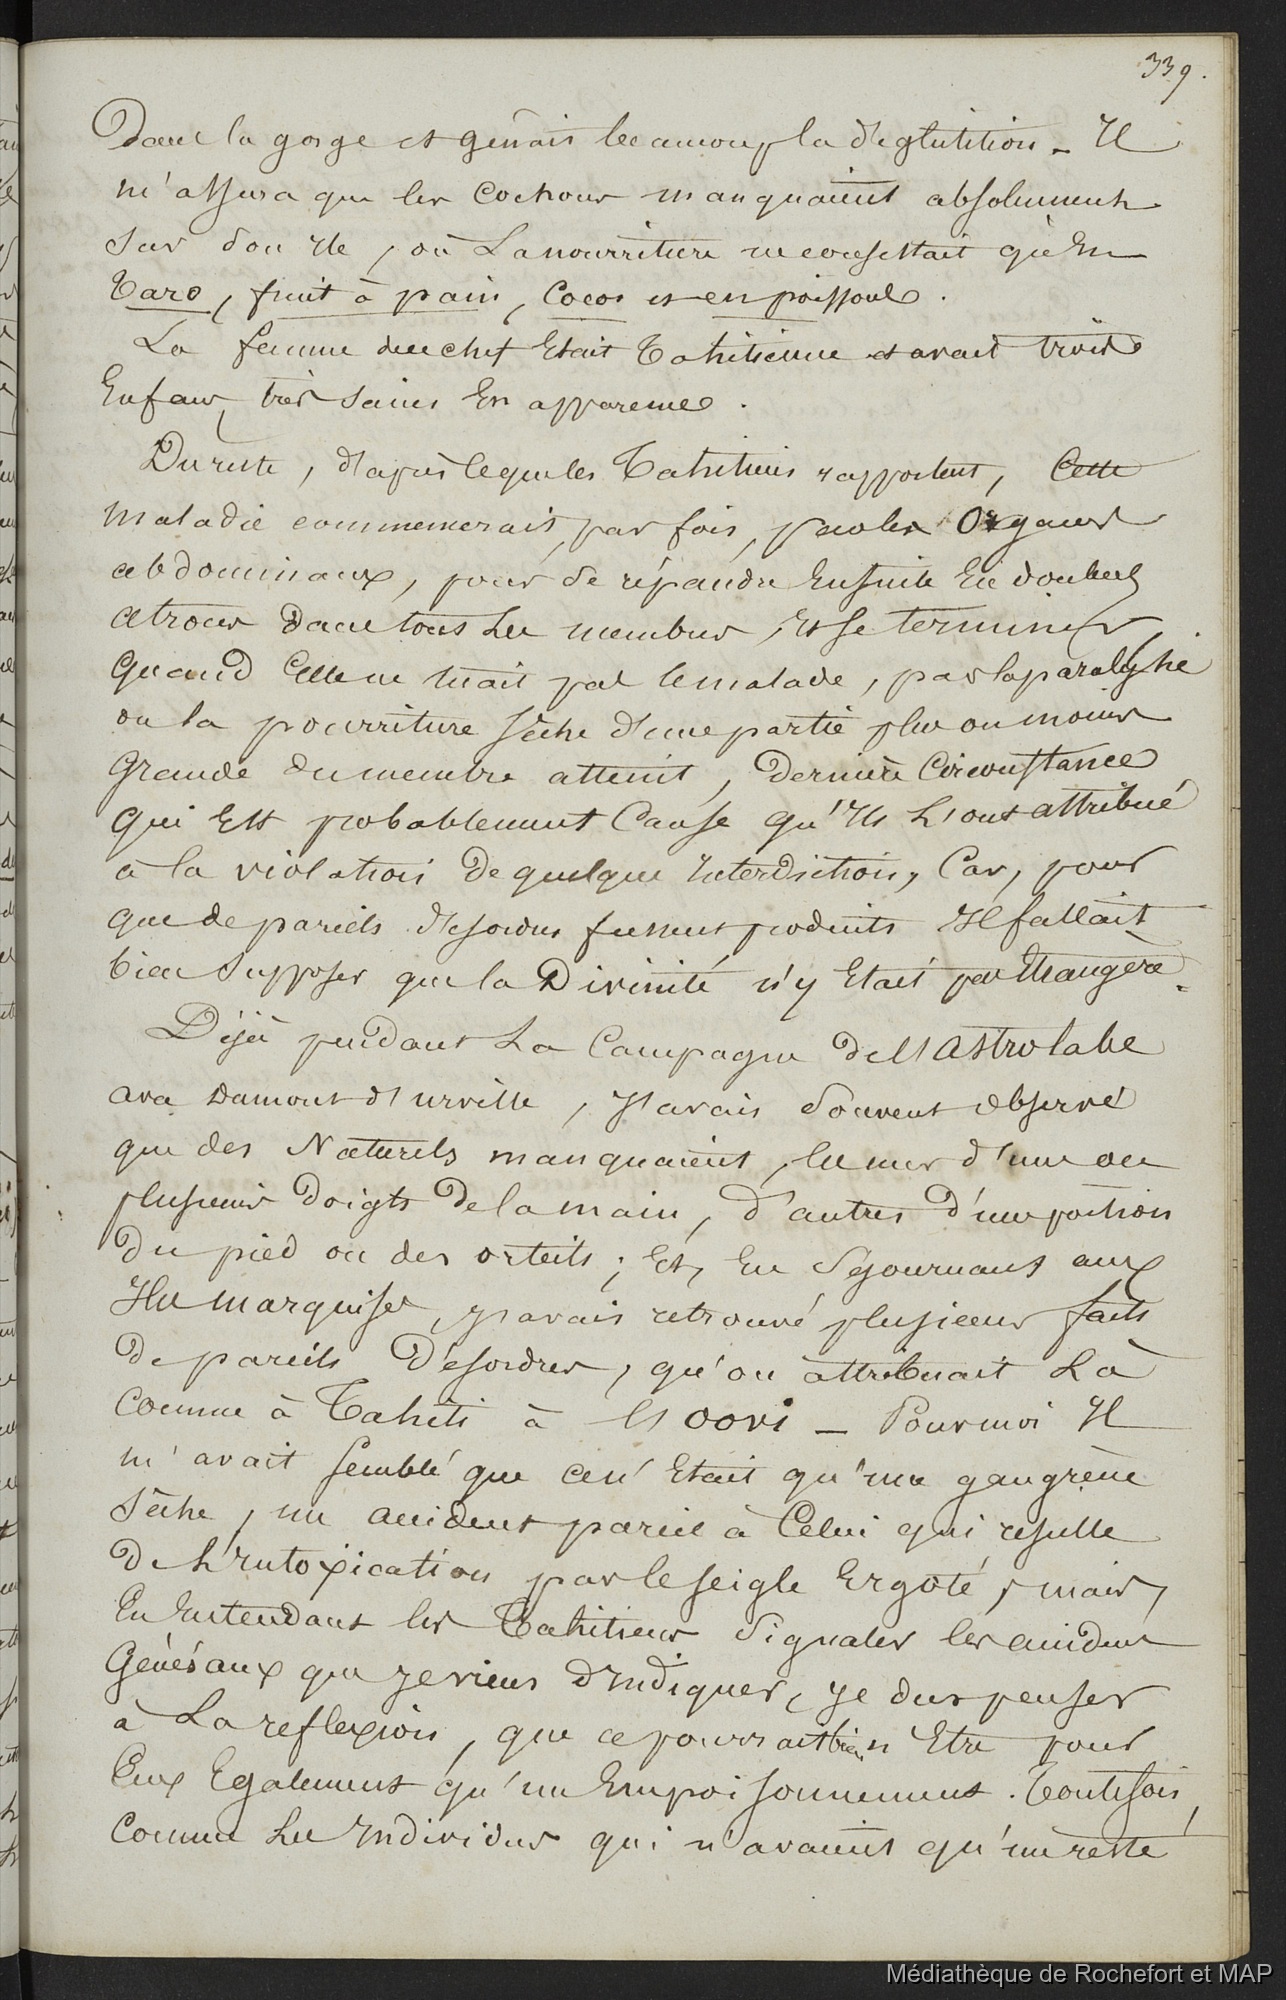 339.
Dans la gorge et gênait beaucoup la déglutition - Il
m'assura que les cochons manquaient absolument
sur son Ile, où La nourriture ne consistait qu'En
Taro, fruit à pain, Cocos et en poissons.
La femme du chef Etait Tahitienne et avait trois
Enfans, très sains En apparence.
Du reste, d'après ce que les Tahitiens rapportent, Cette
maladie commencerait, par fois, par les Organes
abdominaux, pour se répandre Ensuite En douleurs
atroces dans tous Les membres, Et se terminer,
quand Elle ne tuait pas le malade, par la paralysie
ou la pourriture sèche d'une partie plus ou moins
grande du membre atteint, dernière Circonstance
qui Est probablement Cause qu'Ils L'ont attribué
à la violation de quelque Interdiction, Car, pour
que de pareils désordres fussent produits Il fallait
bien supposer que la Divinité n'y Etait pas Etrangère.
Déjà pendant La Campagne de l'Astrolabe
avec Dumont d'urville, J'avais souvent observé
que des Naturels manquaient, les uns d'un ou
plusieurs doigts de la main, d'autres d'une portion
du pied ou des orteils; Et, En séjournant aux
Iles marquises, j'avais retrouvé plusieurs faits
de pareils désordres, qu'on attribuait Là
comme à Tahiti à l'oovi - Pour moi Il
m'avait semblé que ce n'Etait qu'une gangrène
sèche, un accident pareil à Celui qui resulte
de L'intoxication par le seigle Ergoté, mais,
En Entendant les Tahitiens signaler les accidens
Généraux que je viens d'Indiquer, je dus penser
à La reflexion, que ce pourrait bien Etre pour
Eux Egalement qu'un Empoisonnement. Toutefois,
Comme Les Individus qui n'avaient qu'un reste
Médiathèque de Rochefort et MAP